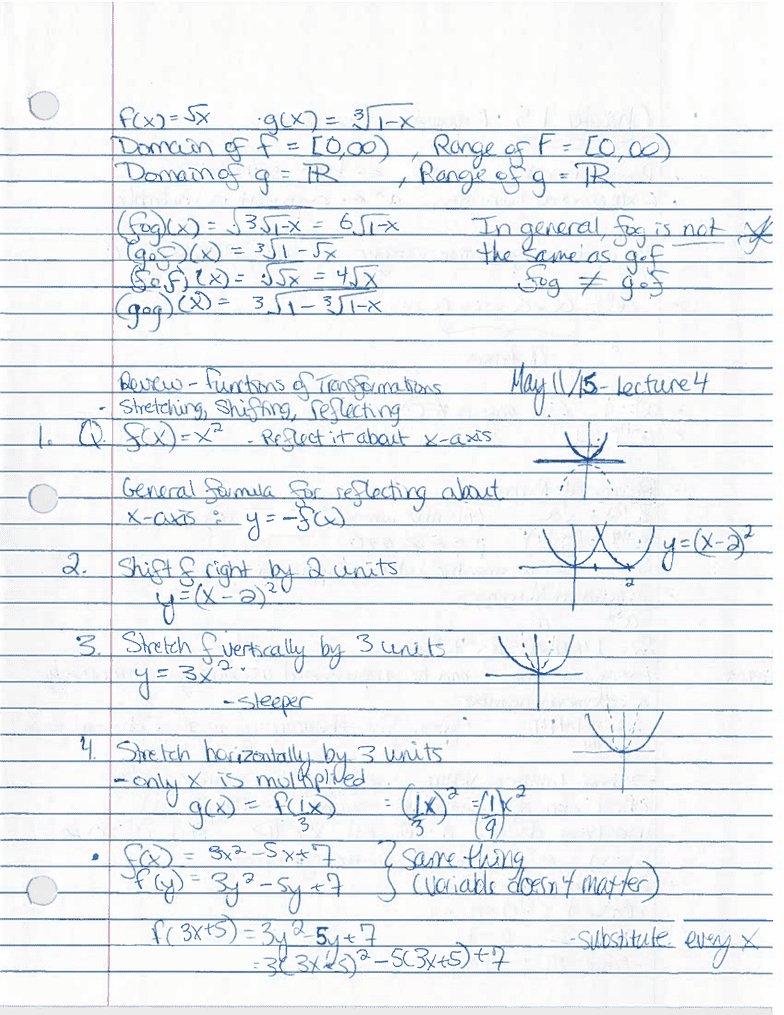 f(x) = √x   · g(x) = ³√1-x
Domain of f = [0,∞) , Range of f = [0,∞)
Domain of g = ℝ , Range of g = ℝ
(fog)(x) = √³√1-x = 6√1-x   In general, fog is not
(gof)(x) = ³√1-√x   the same as gof
(fof)(x) = √√x = 4√x   fog ≠ gof
(gog)(x) = ³√1-³√1-x
Review - Functions of Transformations   May 11/15 - Lecture 4
- Stretching, Shifting, reflecting
1. Q. f(x) = x² - Reflect it about x-axis
General formula for reflecting about
x-axis : y = -f(x)
y = (x-2)²
2. Shift f right by 2 units
2
y = (x-2)²
3. Stretch f vertically by 3 units
y = 3x².
- steeper
4. Stretch horizontally by 3 units
- only x is multiplied
g(x) = f(1/3 x) = (1/3 x)² = (1/9)x²
• f(x) = 3x² - 5x + 7 } same thing
f(y) = 3y² - 5y + 7 } (variable doesn't matter)
f(3x+5) = 3y² - 5y + 7   - substitute every x
= 3(3x+5)² - 5(3x+5) + 7